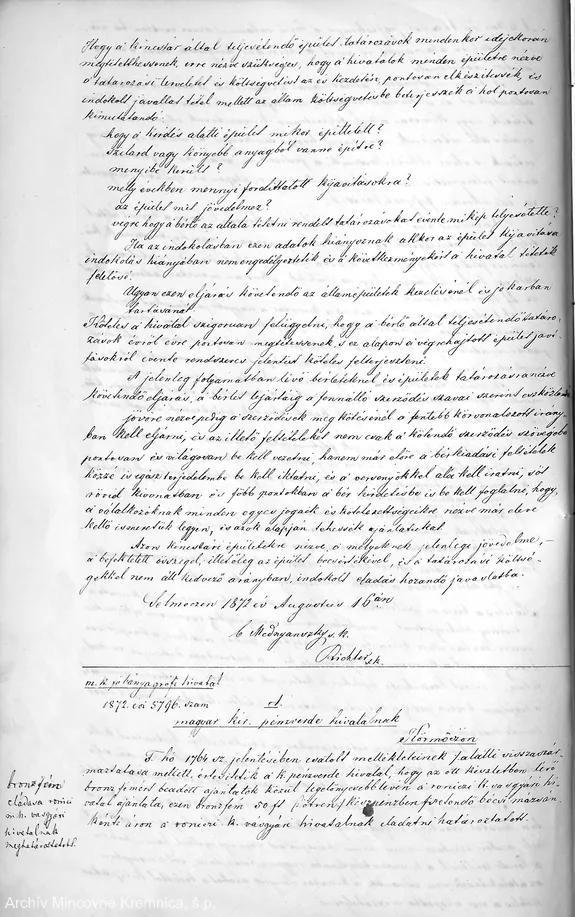 Hogy a kincstár által teljesítendő épület tatarozások mindenkor idejekorán
megtétethessenek, erre nézve szükséges, hogy a hivatalok minden épületre nézve
a tatarozási terveletet és költségvetést az év kezdetére, pontosan elkészítessék, és
indokolt javallat tétel mellett az állam költségvetésbe beterjesszék a hol pontosan
kimutatandó:
hogy a kérdés alatti épület mikor épittetett?
Szilárd vagy könyebb anyagból vanne épitve?
menyibe került?
mely években mennyi fordíttatott kijavitásokra?
az épület mit jövedelmez?
végre hogy a bérlő az általa tétetni rendelt tatarozásokat évente mikép teljesítette?
Ha az indokolásban ezen adatok hiányoznak akkor az épület kijavitása
indokolás hiányában nem engedélyeztetik és a következményekért a hivatal tétetik
felelőssé.
Ugyan ezen eljárás követendő az államépületek kezelésénél és jókarban
tartásánál.
Köteles a hivatal szigoruan felügyelni, hogy a bérlő által teljesítendő tataro-
zások évről évre pontosan megtétessenek, s ez alapon a végrehajtott épület javi-
tásokról évente rendszeres jelentést köteles felterjeszteni.
A jelenleg folyamatban lévő bérleteknél és épületek tatarozásra nézve
követendő eljárás, a bérlet lejártáig a fennálló szerződés szavai szerint eszközlendő
jövőre nézve pedig a szerződések megkötésénél a fentebb körvonalozott irány-
ban kell eljárni, és az illető feltételeket nem csak a kötendő szerződés szövegébe
pontosan és világosan be kell vezetni, hanem már előre a bérkiadási feltételek
közzé is egész terjedelembe be kell iktatni, és a versenyzőkkel alá kell iratni, sőt
rövid kivonatban és főbb pontokban a bér hirdetésbe is be kell foglalni, hogy
a vállalkozóknak minden egyes jogaik és kötelezettségeikre nézve már előre
kellő ismeretük legyen, és azok alapján tehessék ajánlataikat.
Azon kincstári épületekre nézve, a melyeknek jelenlegi jövedelme, –
a befektetett összeget, illetőleg az épület becsértékével, és a tatarozási költsé-
gekkel nem áll kedvező arányban, indokolt eladás hozandó javaslatba.
Selmeczen 1872 év Augustus 16án
C Mednyánszky s. k.
Richter s.k.
m. k. főbányagrófi hivatal
1872. évi 5796. szám
A
magyar kir. pénzverde hivatalnak
Körmöczön
F. hó 1764 sz. jelentésében csatolt mellékleteinek ∫. alatti visszaszár-
maztatása mellett, értesittetik a k. pénzverde hivatal, hogy az ott készletben lévő
bronz fémért beadott ajánlatok közül legelőnyösebb lévén a róniczi k. vasgyári hi-
vatal ajánlata, ezen bronzfém 50 ft (ötven) készpénzben fizetendő bécsi mázsán-
kénti áron a róniczi k. vasgyári hivatalnak eladatni határoztatott.
bronzfém
eladása rónici
m. k. vasgyári
hivatalnak
meghatároztatott.
Archív Mincovne Kremnica, š.p.